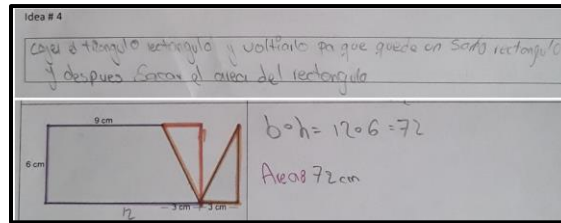 Idea # 4
coger el triangulo rectangulo y voltiarlo pa que quede un solo rectangulo
y despues sacar el area del rectangulo
9 cm
6 cm
12
3 cm
3 cm
b•h = 12•6 = 72
Area 72 cm